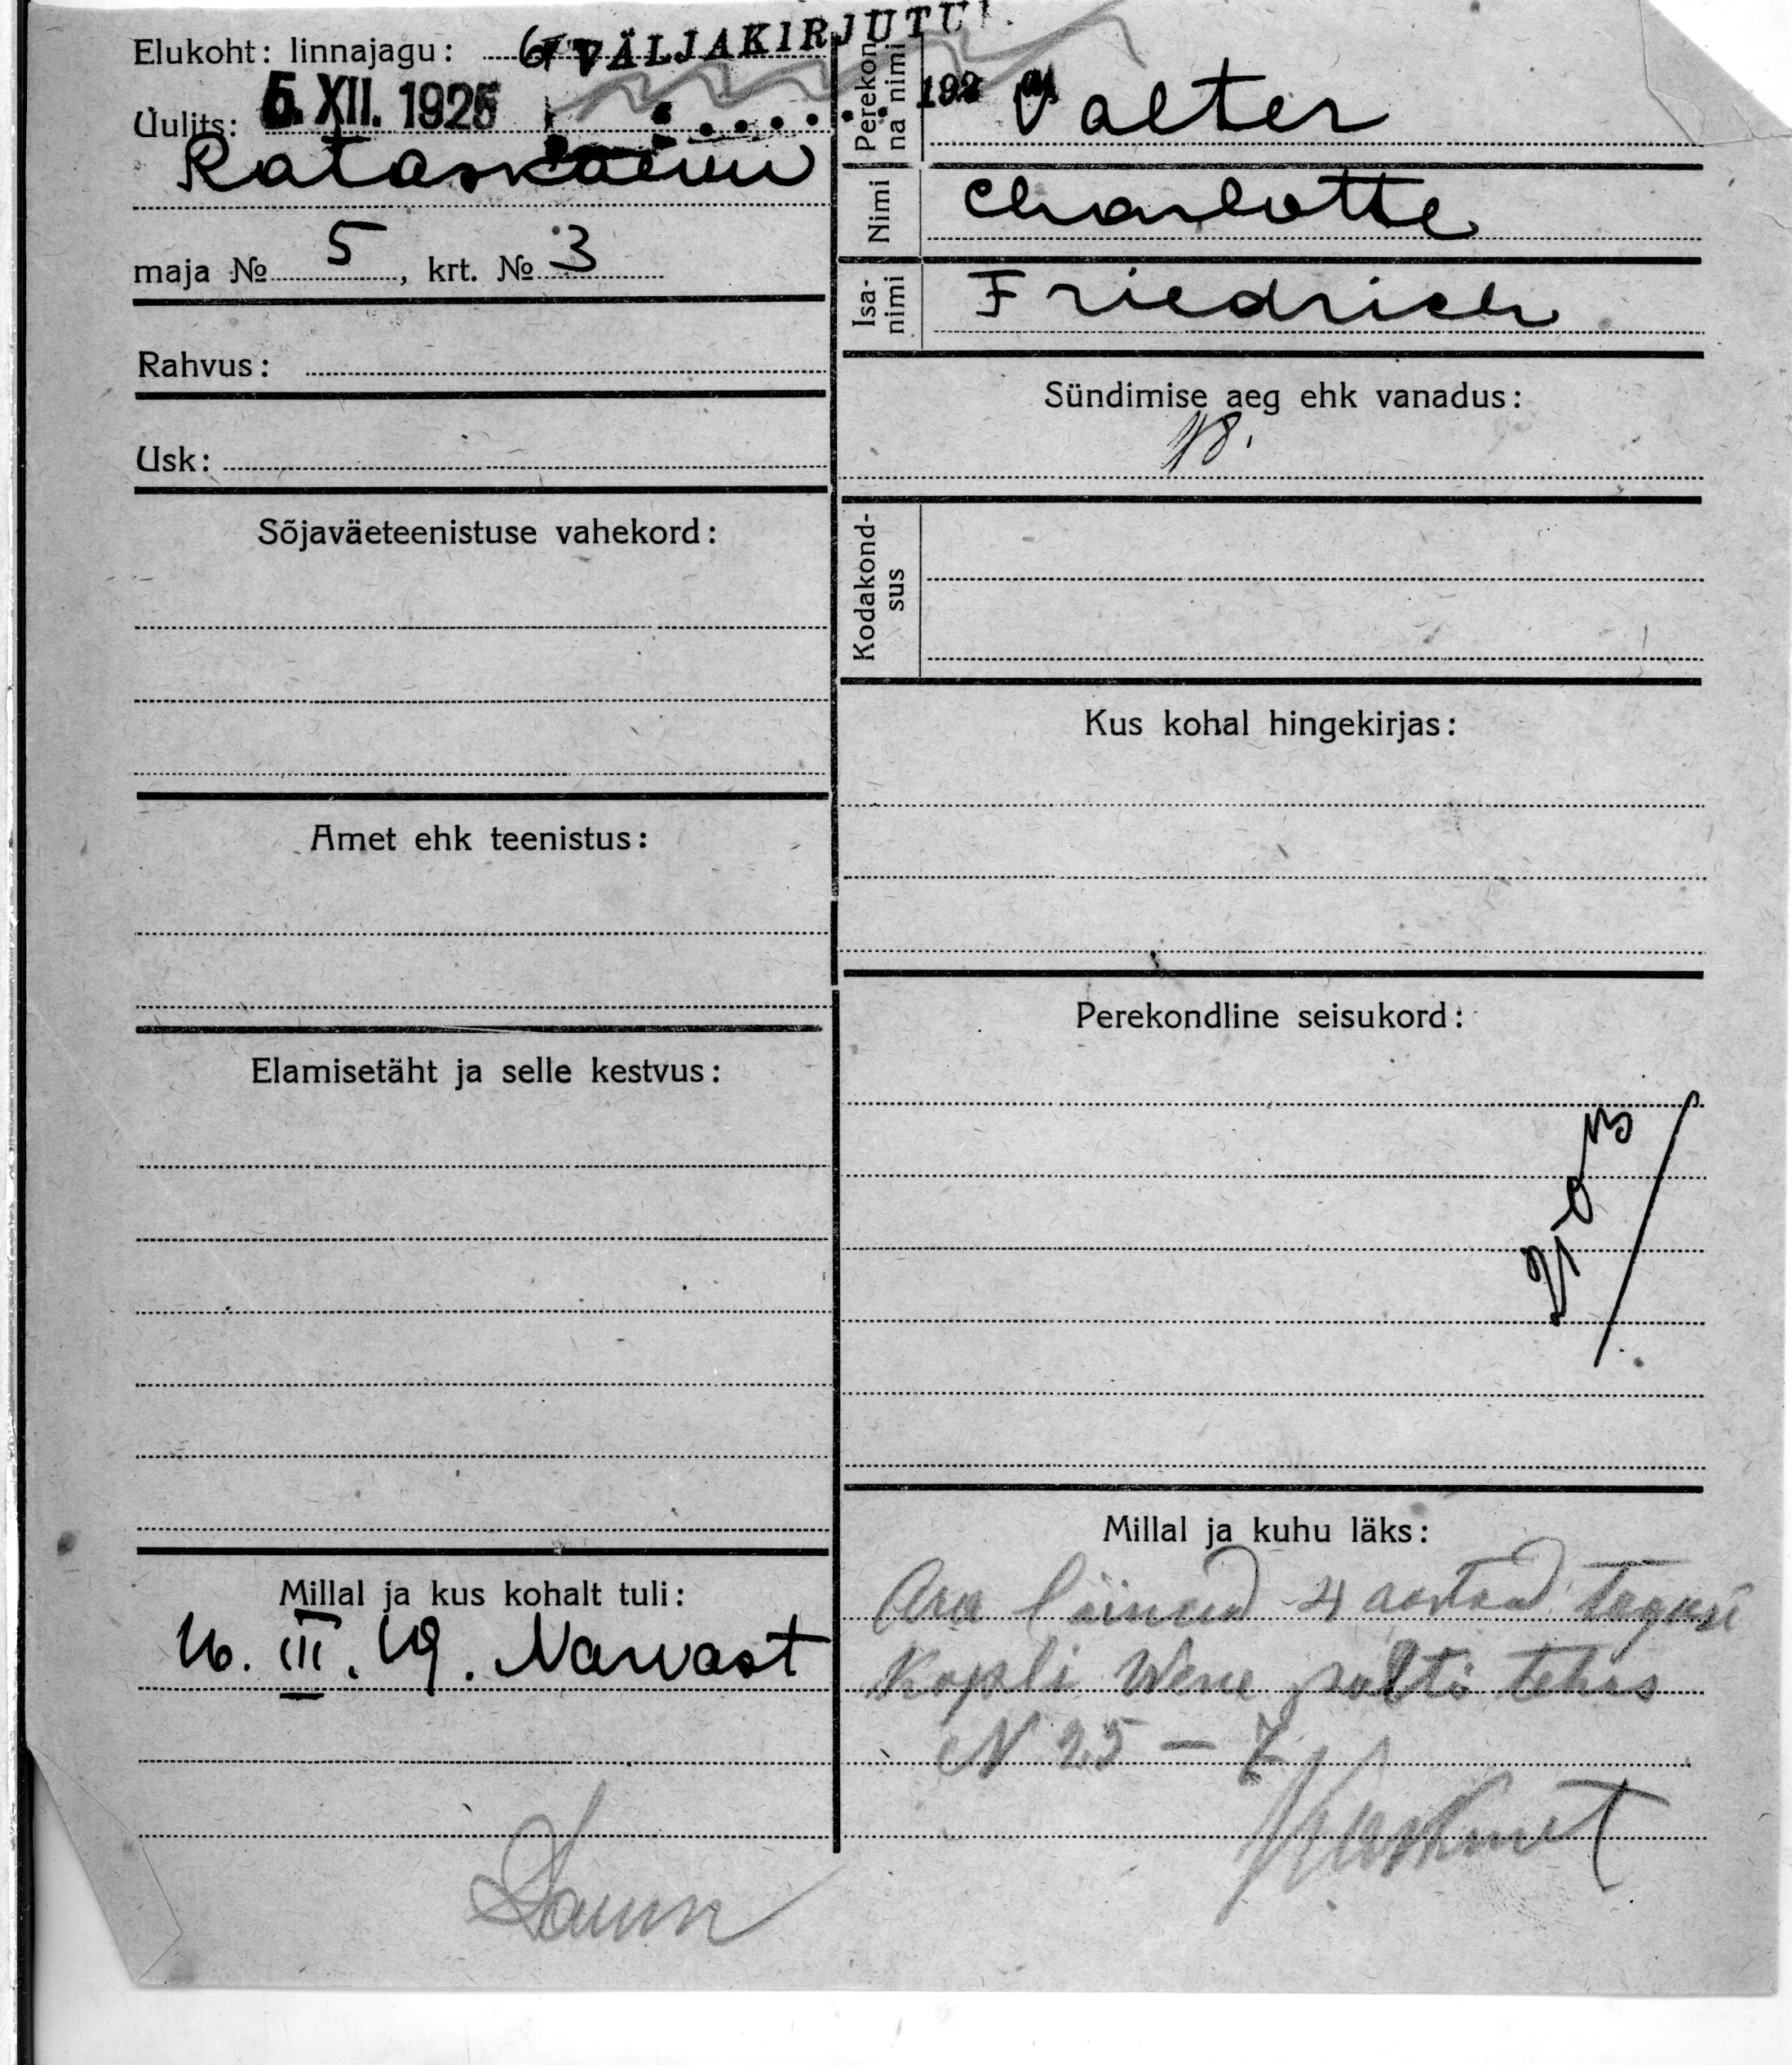 Elukoht: linnajagu:
VÄLJAKIRJUTU
Uulits: 5. XII. 1925
Rataskaevu
maja № 5, krt. № 3
Rahvus:
Usk:
Sõjaväeteenistuse vahekord:
Amet ehk teenistus:
Elamisetäht ja selle kestvus:
Millal ja kus kohalt tuli:
16. III. 19. Narvast
192
Perekonna nimi Valter
Nimi Charlotte
Isanimi Friedrich
Sündimise aeg ehk vanadus:
18.
Kodakondsus
Kus kohal hingekirjas:
Perekondline seisukord:
Millal ja kuhu läks:
Ära läinud 4 aastad tagasi
Kopli Wene Balti tehas
N 25 – 7